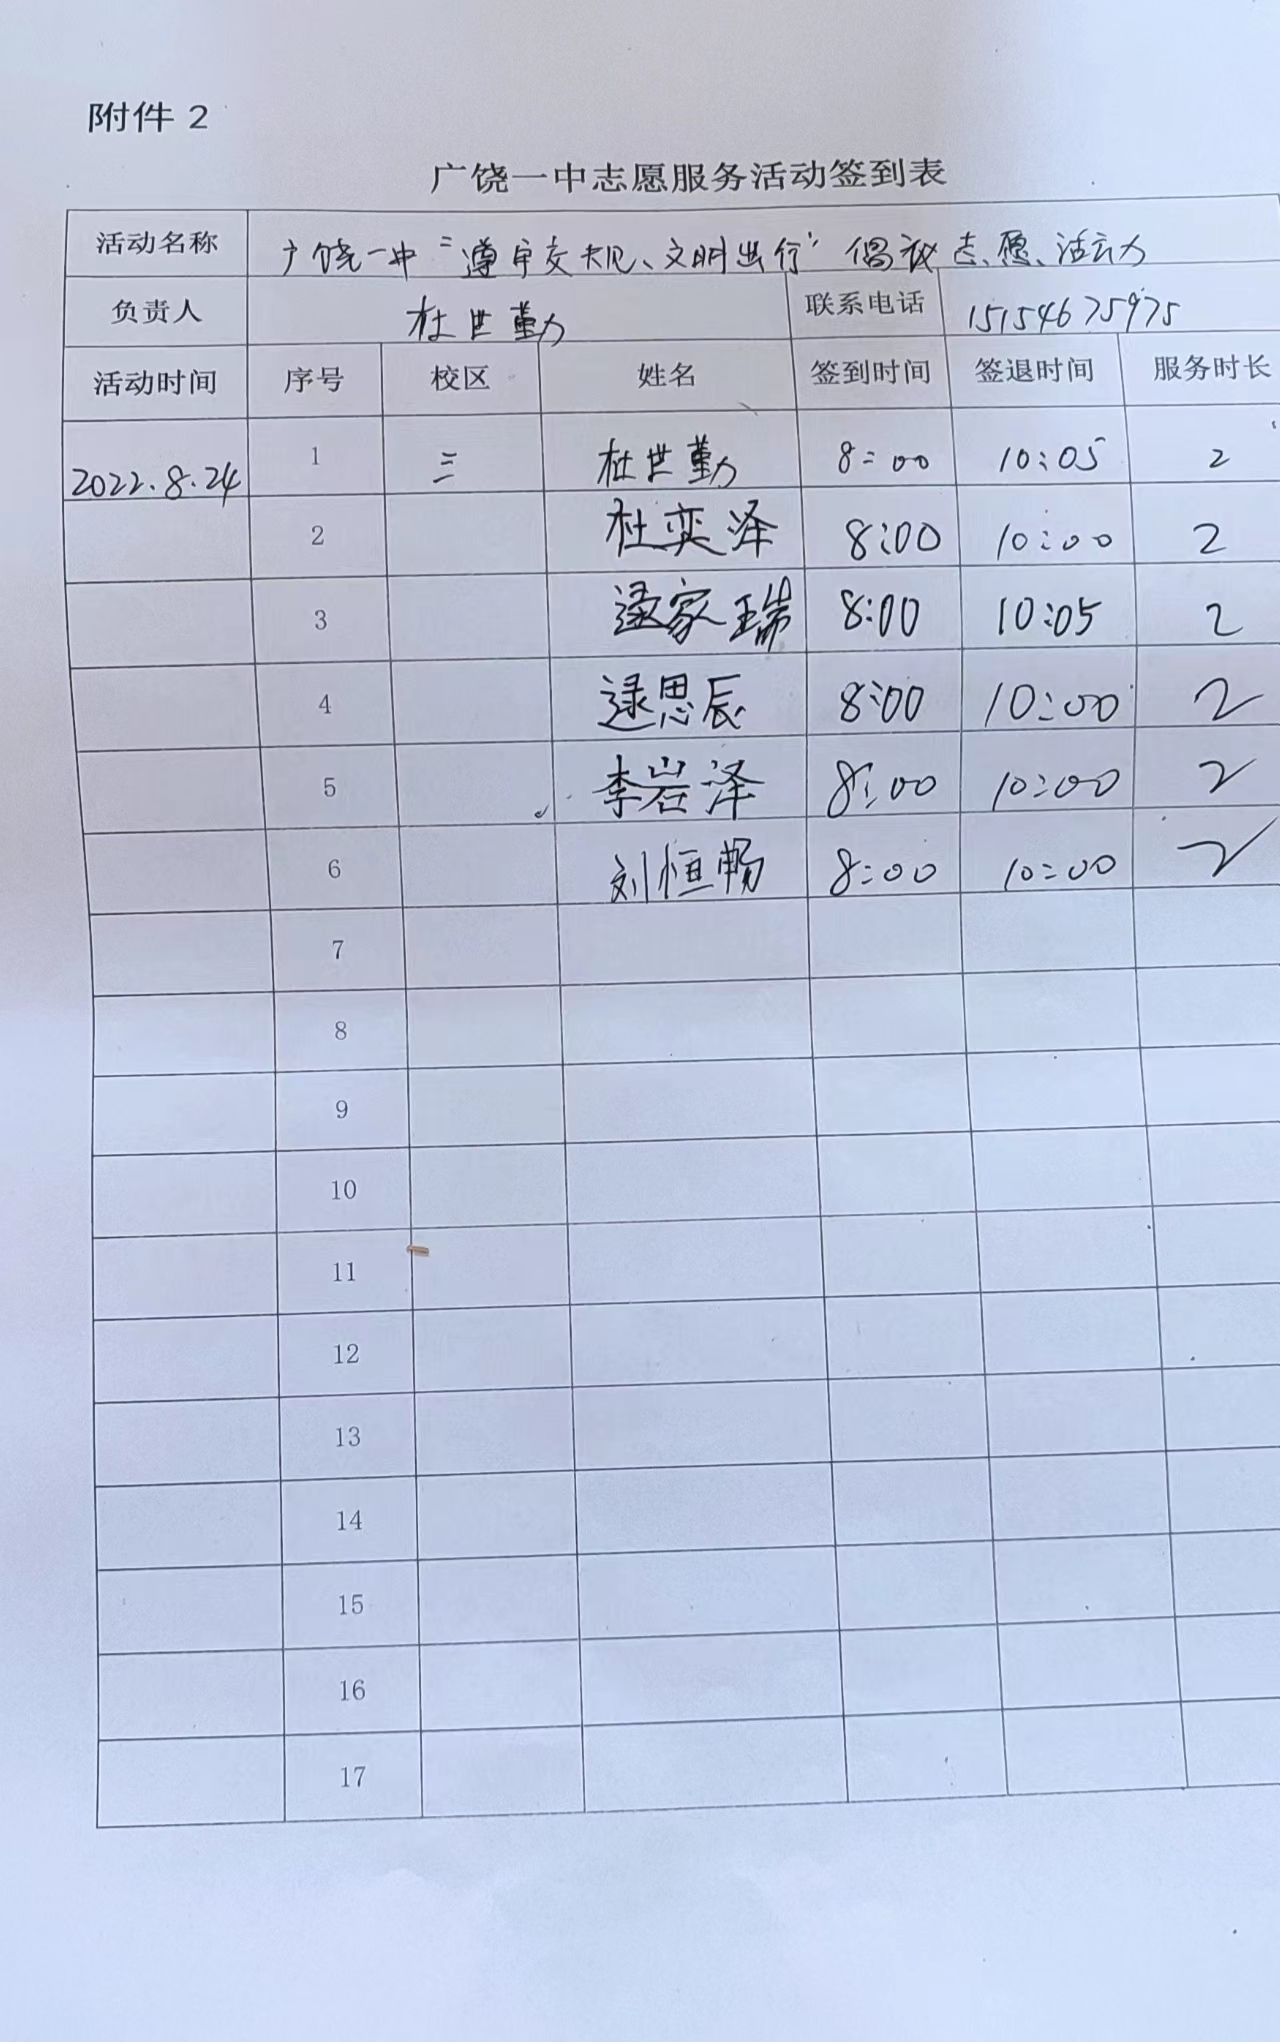 附件 2
广饶一中志愿服务活动签到表
活动名称 广饶一中“遵守交规、文明出行”倡议志愿活动
负责人 杜世勤 联系电话 15154675975
活动时间 序号 校区 姓名 签到时间 签退时间 服务时长
2022.8.24 1 三 杜世勤 8:00 10:05 2
2 杜奕泽 8:00 10:00 2
3 逯家瑞 8:00 10:05 2
4 逯思辰 8:00 10:00 2
5 李岩泽 8:00 10:00 2
6 刘恒畅 8:00 10:00 2
7
8
9
10
11
12
13
14
15
16
17